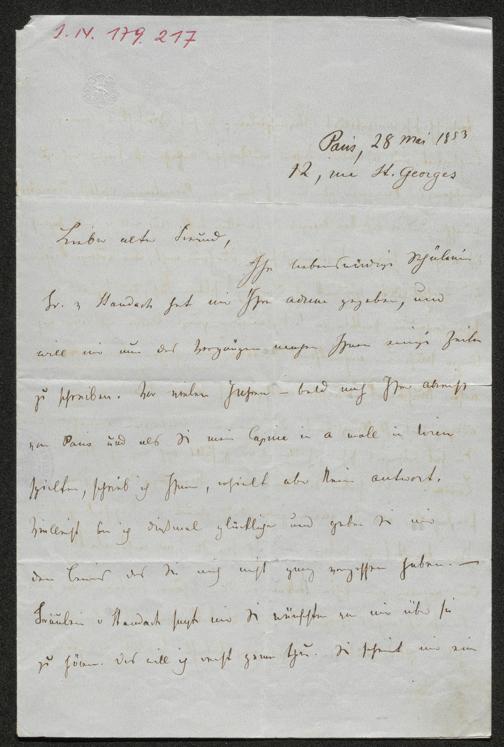 I.N. 179.217
Paris, 28 Mai 1853
12, rue St. Georges
Lieber alter Freund,
Ihre liebenswürdige Schülerin
Fr. v Staudach hat mir Ihre adresse gegeben, und
will mir nun das Vergnügen machen Ihnen einige Zeilen
zu schreiben. Vor vielen Jahren – bald nach Ihrer abreise
von Paris und als Sie mein Caprice in a moll in Wien
spielten, schrieb ich Ihnen, erhielt aber keine antwort.
Vielleicht bin ich diesmal glücklicher und geben Sie mir
den Beweis daß Sie mich nicht ganz vergessen haben. —
Fräulein v Staudach sagte mir Sie wünschten von mir über sie
zu hören. Das will ich recht gerne thun. Sie scheint mir eine